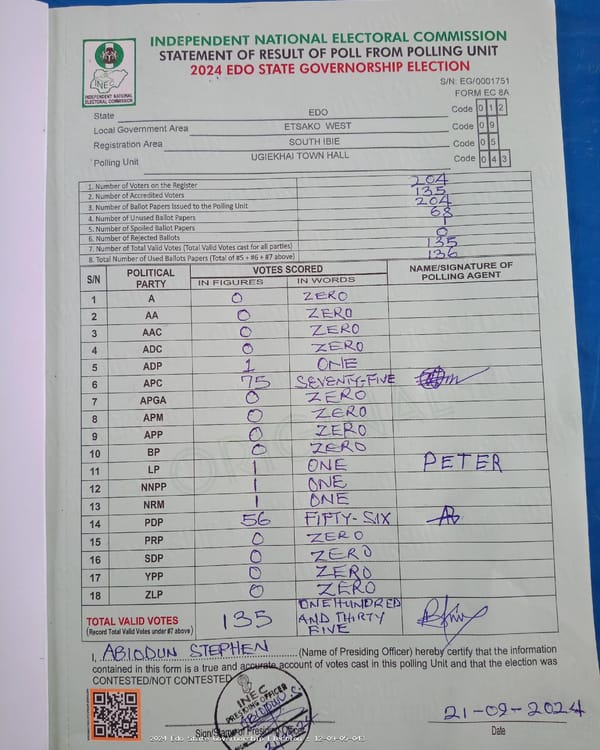 INDEPENDENT NATIONAL ELECTORAL COMMISSION
STATEMENT OF RESULT OF POLL FROM POLLING UNIT
2024 EDO STATE GOVERNORSHIP ELECTION
INEC
INDEPENDENT NATIONAL
ELECTORAL COMMISSION
S/N: EG/0001751
FORM EC 8A
State EDO Code 0 1 2
Local Government Area ETSAKO WEST Code 0 9
Registration Area SOUTH IBIE Code 0 5
Polling Unit UGIEKHAI TOWN HALL Code 0 4 3
1. Number of Voters on the Register 204
2. Number of Accredited Voters 135
3. Number of Ballot Papers Issued to the Polling Unit 204
4. Number of Unused Ballot Papers 68
5. Number of Spoiled Ballot Papers 1
6. Number of Rejected Ballots 0
7. Number of Total Valid Votes (Total Valid Votes cast for all parties) 135
8. Total Number of Used Ballots Papers (Total of #5 + #6 + #7 above) 136
S/N POLITICAL PARTY VOTES SCORED NAME/SIGNATURE OF POLLING AGENT
IN FIGURES IN WORDS
1 A 0 ZERO
2 AA 0 ZERO
3 AAC 0 ZERO
4 ADC 0 ZERO
5 ADP 1 ONE
6 APC 75 SEVENTY-FIVE
7 APGA 0 ZERO
8 APM 0 ZERO
9 APP 0 ZERO
10 BP 0 ZERO
11 LP 1 ONE PETER
12 NNPP 1 ONE
13 NRM 1 ONE
14 PDP 56 FIFTY-SIX
15 PRP 0 ZERO
16 SDP 0 ZERO
17 YPP 0 ZERO
18 ZLP 0 ZERO
TOTAL VALID VOTES 135 ONE HUNDRED AND THIRTY FIVE
(Record Total Valid Votes under #7 above)
I, ABIODUN STEPHEN (Name of Presiding Officer) hereby certify that the information
contained in this form is a true and accurate account of votes cast in this polling Unit and that the election was
CONTESTED/NOT CONTESTED
INEC
PRESIDING OFFICER
ABIODUN S.
21-09-2024
Sign/Stamp of Presiding Officer Date
2024 Edo State Governorship Election - 12-09-05-043